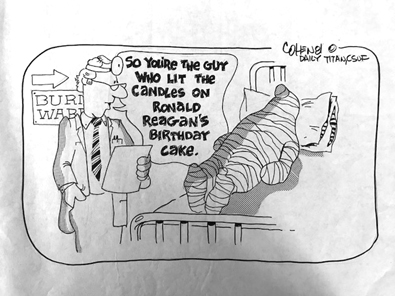 COHEN81 ©
DAILY TITAN, CSUF
SO YOU'RE THE GUY
WHO LIT THE
CANDLES ON
RONALD
REAGAN'S
BIRTHDAY
CAKE.
BUR
WAR